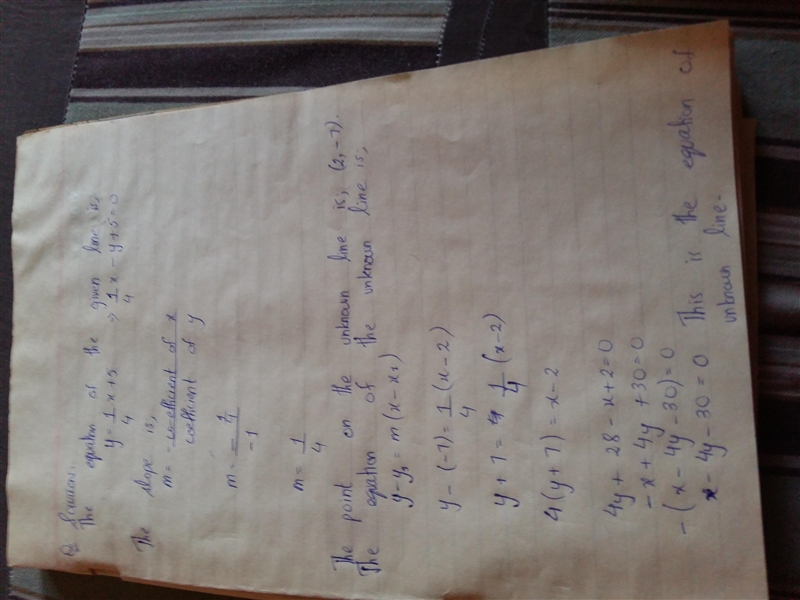 Q Solution:
The equation of the given line is,
y = 1/4 x + 5 ⇒ 1/4 x - y + 5 = 0
The slope is,
m = - co-efficient of x / coefficient of y
m = - 1/4 / -1
m = 1/4
The point on the unknown line is, (2, -7).
The equation of the unknown line is,
y - y₁ = m (x - x₁)
y - (-7) = 1/4 (x - 2)
y + 7 = 1/4 (x - 2)
4 (y + 7) = x - 2
4y + 28 - x + 2 = 0
- x + 4y + 30 = 0
- (x - 4y - 30) = 0
x - 4y - 30 = 0 This is the equation of
unknown line.